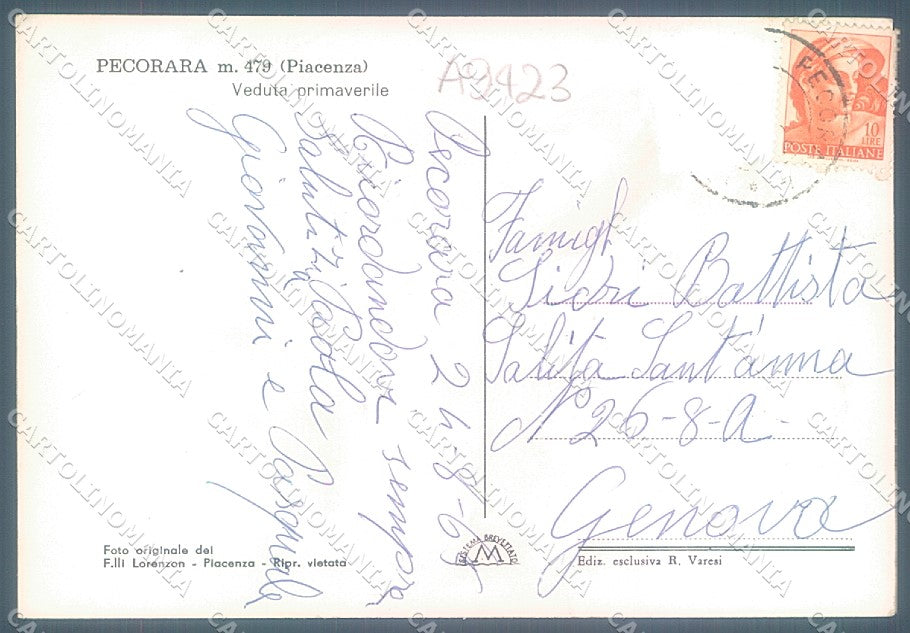 PECORARA m. 479 (Piacenza)
Veduta primaverile
A9423
Pecorara 24-8-6
Ricordandovi sempre
Saluti Paola
Giovanni e Pasquale
PECOR
10
LIRE
POSTE ITALIANE
Famigl
Battista
Salita Sant'anna
N° 26-8-A-
Genova
Foto originale dei
F.lli Lorenzon - Piacenza - Ripr. vietata
SISTEMA BREVETTATO
M
Ediz. esclusiva R. Varesi
CARTOLINOMANIA